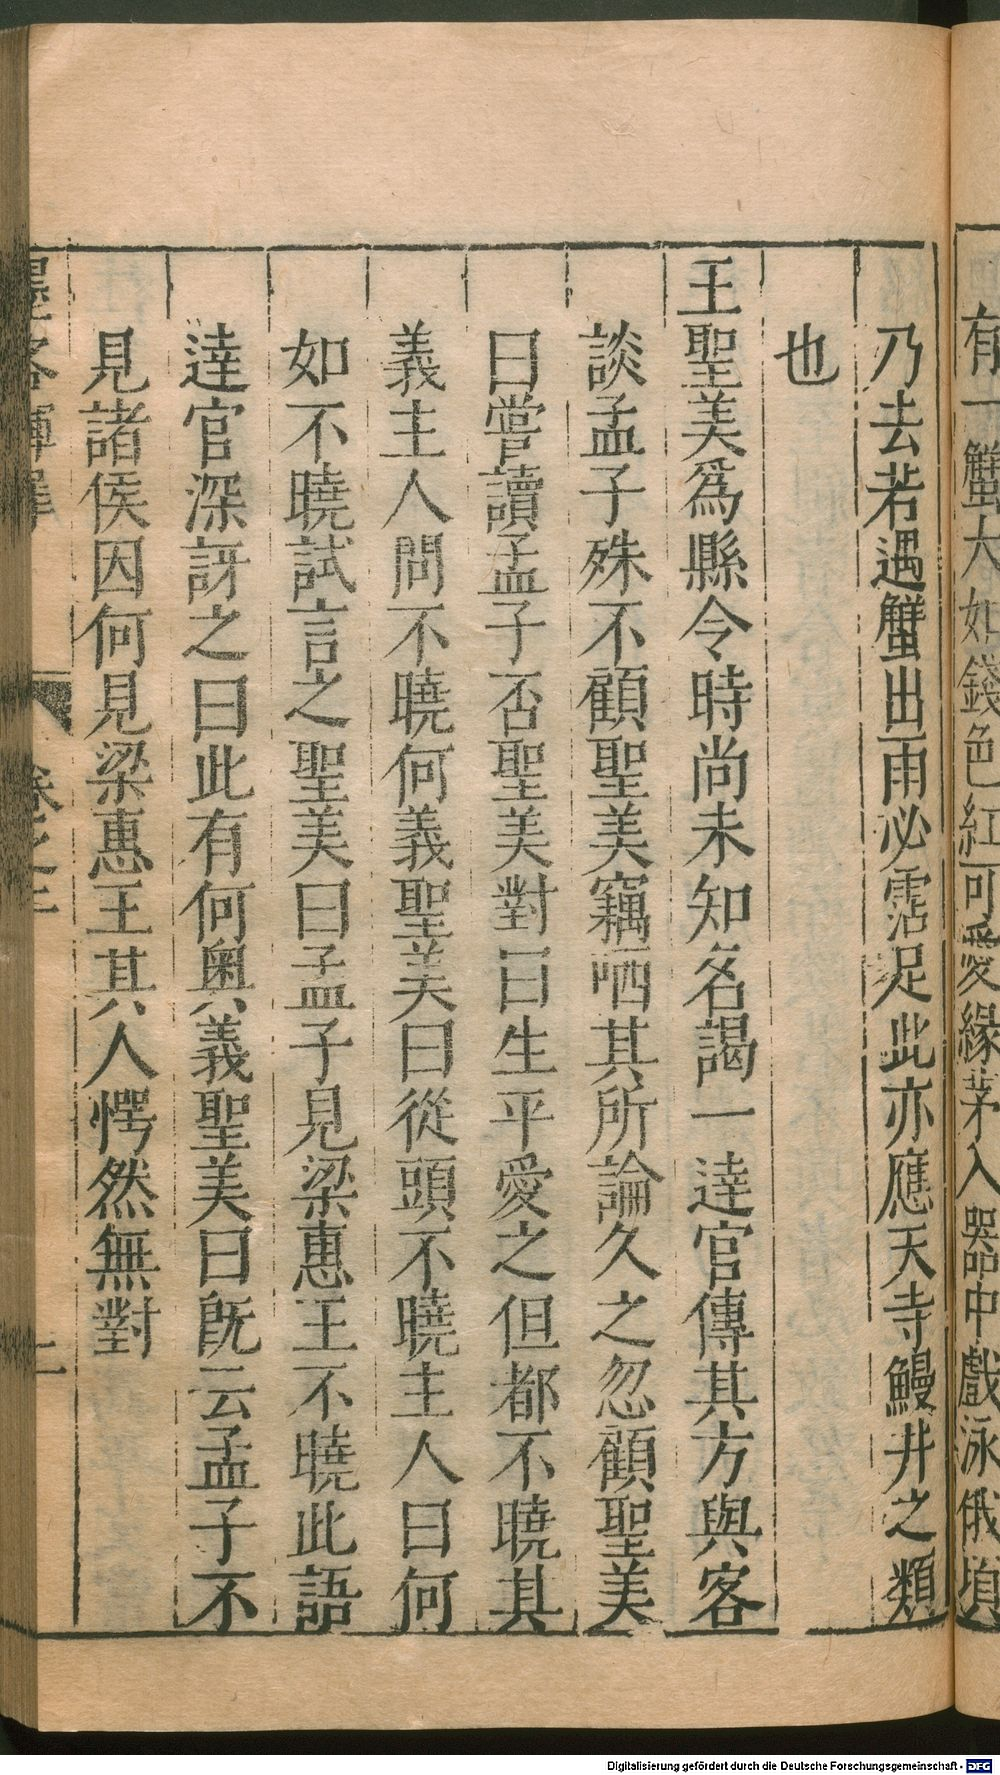 有一蟹大如錢色紅可愛緣茅入器中戲泳俄頃
乃去若遇蟹出雨必霑足此亦應天寺鰻井之類
也
王聖美爲縣令時尚未知名謁一達官傳其方與客
談孟子殊不顧聖美竊哂其所論久之忽顧聖美
曰嘗讀孟子否聖美對曰生平愛之但都不曉其
義主人問不曉何義聖美曰從頭不曉主人曰何
如不曉試言之聖美曰孟子見梁惠王不曉此語
達官深訝之曰此有何奧義聖美曰旣云孟子不
見諸侯因何見梁惠王其人愕然無對
墨客揮犀
卷之三
二
Digitalisierung gefördert durch die Deutsche Forschungsgemeinschaft - DFG